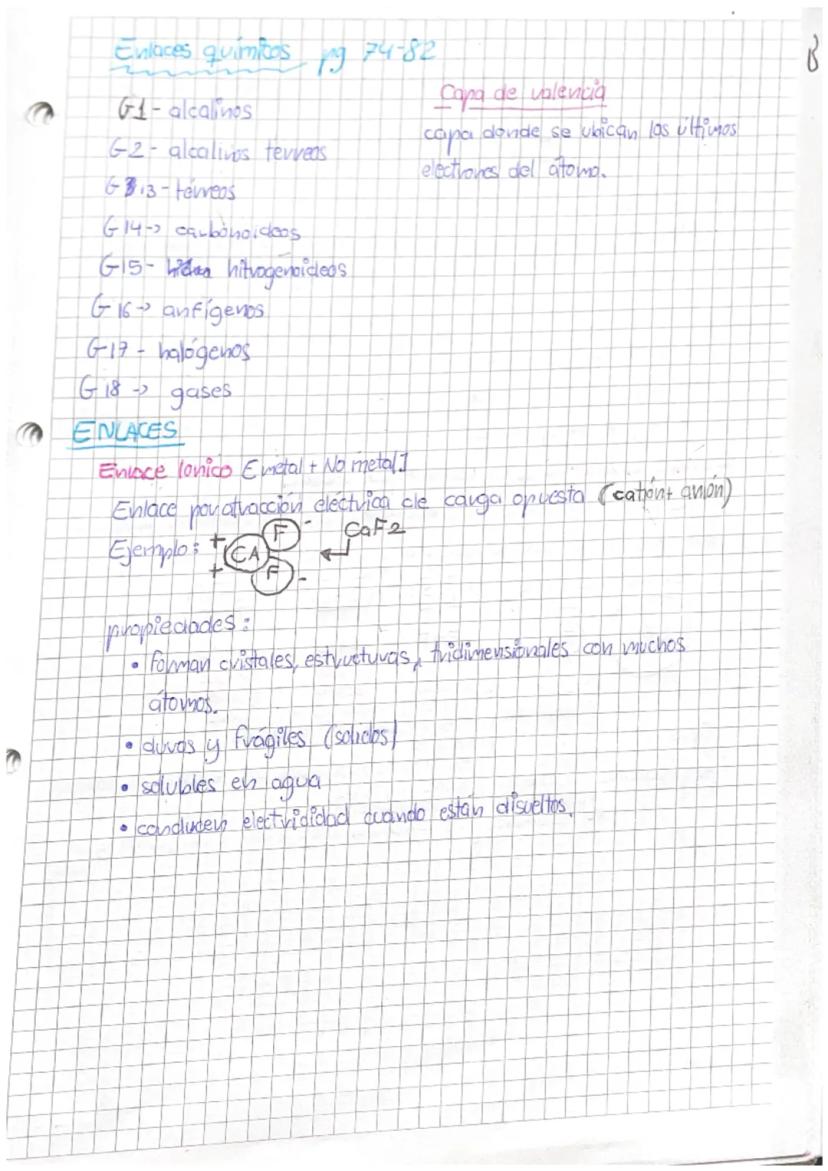 Enlaces químicos pg 74-82
B
G1- alcalinos
G2- alcalinos térreos
G13- térreos
G14-> carbonoideos
G15- nitrogenoideos
G16-> anfígenos
G17- halógenos
G18-> gases
Capa de valencia
capa donde se ubican los últimos
electrones del átomo.
ENLACES
Enlace Ionico [metal + No metal]
Enlace por atracción eléctrica de carga opuesta (catión+ anión)
Ejemplo: + + CA F - F - CaF2
propiedades:
• Forman cristales, estructuras, tridimensionales con muchos
átomos.
• duros y frágiles (solidos)
• solubles en agua
• conducen electrididad cuando están disueltos.